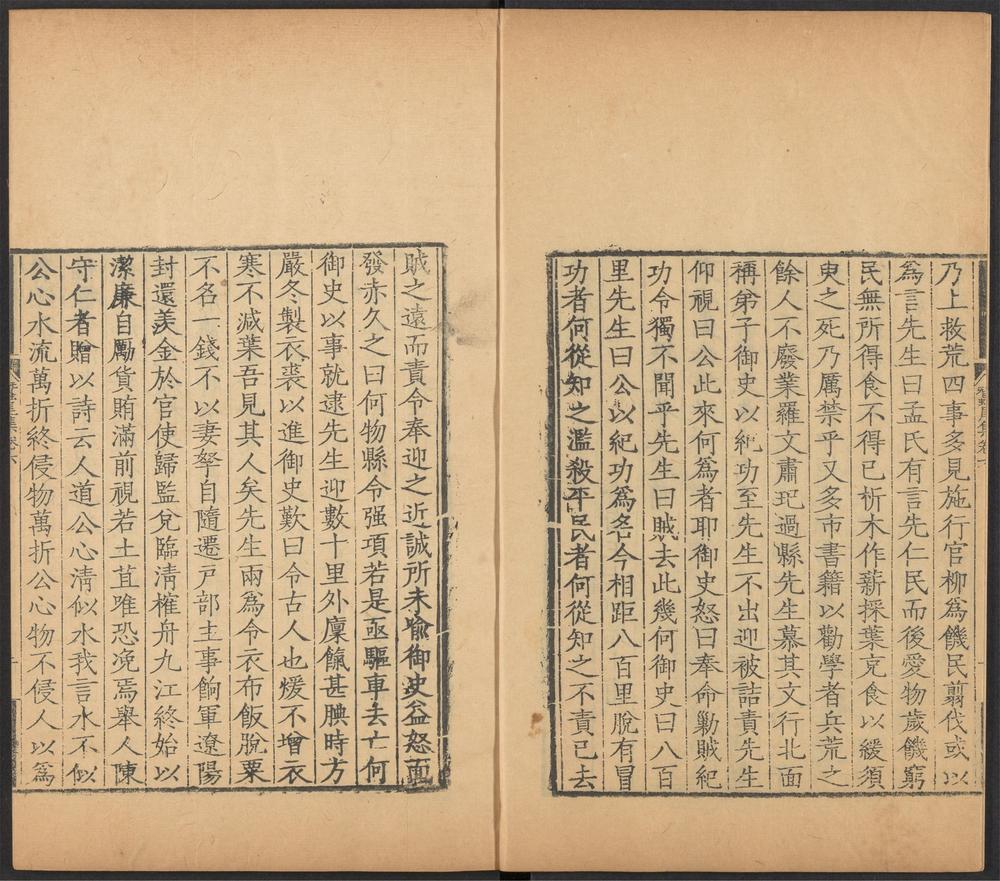 乃上救荒四事多見施行官柳爲饑民翦伐或以
爲言先生曰孟氏有言先仁民而後愛物歲饑窮
民無所得食不得已析木作薪採葉充食以緩須
臾之死乃厲禁乎又多市書籍以勸學者兵荒之
餘人不廢業羅文肅玘過縣先生慕其文行北面
稱弟子御史以紀功至先生不出迎被詰責先生
仰視曰公此來何爲者耶御史怒曰奉命勦賊紀
功令獨不聞乎先生曰賊去此幾何御史曰八百
里先生曰公以紀功爲名今相距八百里脫有冒
功者何從知之濫殺平民者何從知之不責已去
賊之遠而責令奉迎之近誠所未喻御史益怒面
發赤久之曰何物縣令强項若是亟驅車去亡何
御史以事就逮先生迎數十里外廩餼甚腆時方
嚴冬製衣裘以進御史歎曰令古人也煖不增衣
寒不減葉吾見其人矣先生兩爲令衣布飯脫粟
不名一錢不以妻孥自隨遷戸部主事餉軍遼陽
封還羨金於官使歸監兌臨淸榷舟九江終始以
潔廉自勵貨賄滿前視若土苴唯恐凂焉舉人陳
守仁者贈以詩云人道公心淸似水我言水不似
公心水流萬折終侵物萬折公心物不侵人以爲